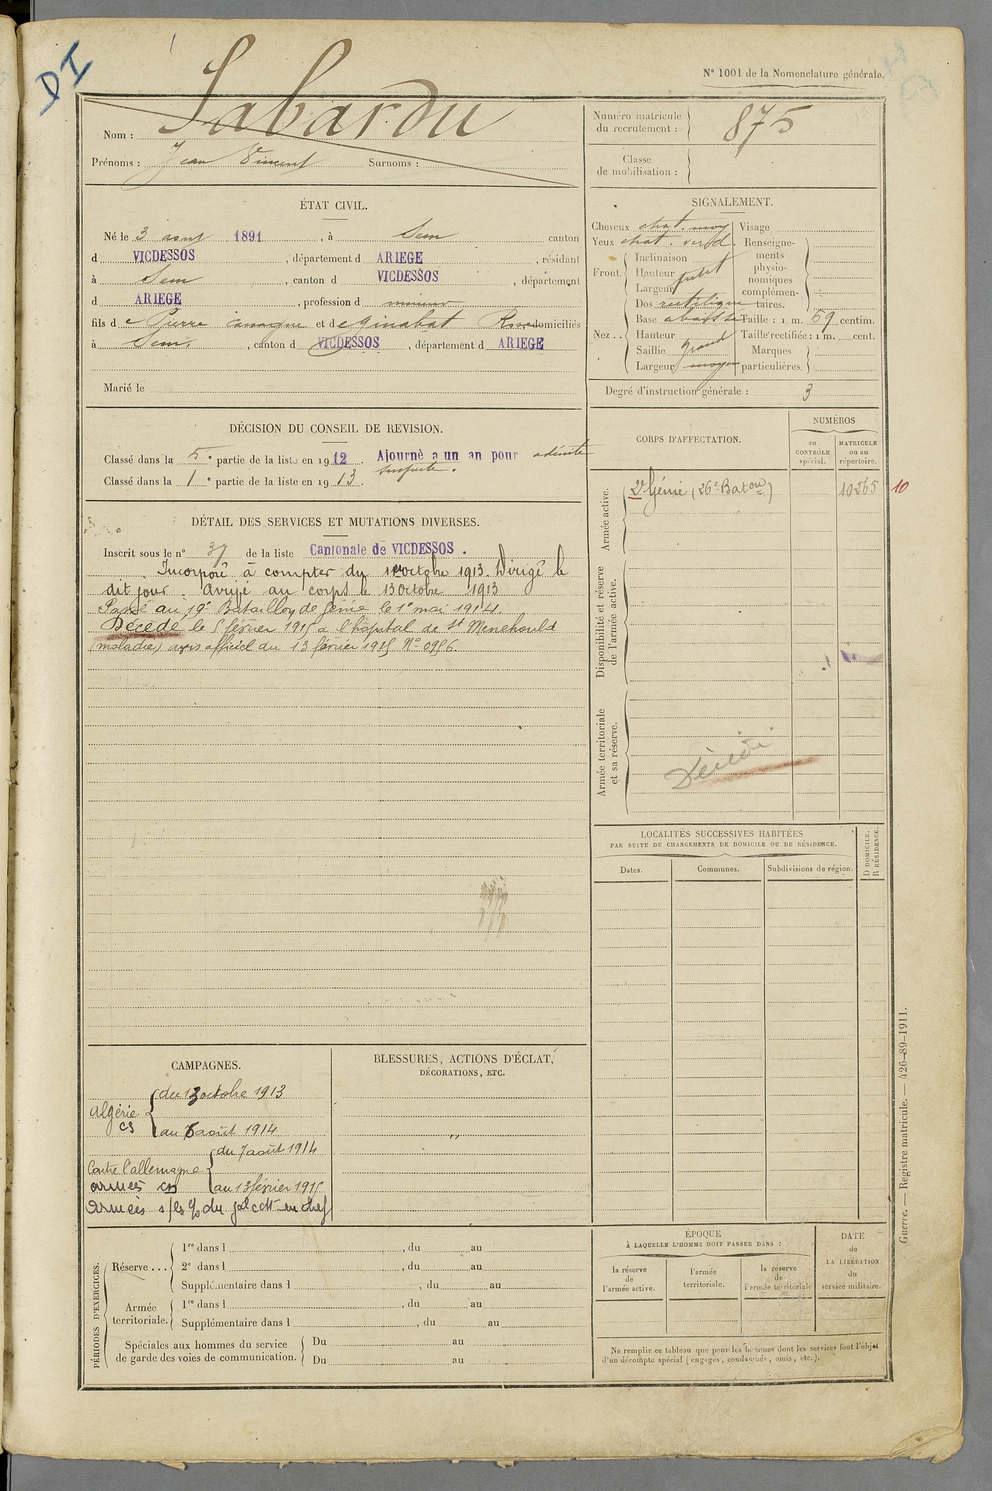 DI
N° 1001 de la Nomenclature générale.
Nom : Sabardu
Prénoms : Jean Vincent Surnoms :
Numéro matricule du recrutement : 875
Classe de mobilisation :
ÉTAT CIVIL.
Né le 3 aout 1891, à Sem canton
d VICDESSOS, département d ARIEGE, résidant
à Sem, canton d VICDESSOS, département
d ARIEGE, profession d mineur
fils d e Pierre et d e Ginabat domiciliés
à Sem, canton d VICDESSOS, département d ARIEGE
Marié le
SIGNALEMENT.
Cheveux chat. moy
Yeux chat. verd.
Front
Inclinaison
Hauteur
Largeur
Nez
Dos rectiligne
Base
Hauteur
Saillie grand
Largeur moyen
Visage
Renseignements physionomiques complémentaires.
Taille : 1 m. 69 centim.
Taille rectifiée : 1 m. cent.
Marques particulières.
Degré d'instruction générale : 3
DÉCISION DU CONSEIL DE REVISION.
Classé dans la 5e partie de la liste en 1912. Ajourné a un an pour adénite
suspecte.
Classé dans la 1e partie de la liste en 1913.
DÉTAIL DES SERVICES ET MUTATIONS DIVERSES.
Inscrit sous le n° 37 de la liste Cantonale de VICDESSOS.
Incorporé à compter du octobre 1913. Dirigé le
dit jour. Arrivé au corps le 13 octobre 1913
Passé au 19e Bataillon de Génie le 1er mai 1914.
Décédé le 5 février 1915 à l'hopital de St Menehould
(maladie) avis officiel du 13 février 1915 N°
CORPS D'AFFECTATION.
NUMÉROS
au CONTRÔLE spécial.
MATRICULE ou au répertoire.
Armée active.
2e Génie (26e Baton) 10265 10
Disponibilité et réserve de l'armée active.
Armée territoriale et sa réserve.
Décédé
LOCALITÉS SUCCESSIVES HABITÉES
PAR SUITE DE CHANGEMENTS DE DOMICILE OU DE RÉSIDENCE.
Dates.
Communes.
Subdivisions de région.
D DOMICILE.
R RÉSIDENCE.
CAMPAGNES.
Algérie CS du 13 octobre 1913
au 6 août 1914
Contre l'allemagne du 7 août 1914
armées au 13 février 1915
armées
BLESSURES, ACTIONS D'ÉCLAT,
DÉCORATIONS, ETC.
"
PÉRIODES D'EXERCICES.
Réserve ...
1re dans l , du au
2e dans l , du au
Supplémentaire dans l , du au
Armée territoriale.
1re dans l , du au
Supplémentaire dans l , du au
Spéciales aux hommes du service de garde des voies de communication.
Du au
Du au
ÉPOQUE
À LAQUELLE L'HOMME DOIT PASSER DANS :
la réserve de l'armée active.
l'armée territoriale.
la réserve de l'armée territoriale
DATE de LA LIBÉRATION du service militaire.
Ne remplir ce tableau que pour les hommes dont les services font l'objet
d'un décompte spécial (engagés, condamnés, omis, etc.).
Guerre. — Registre matricule. — 426-89-1911.